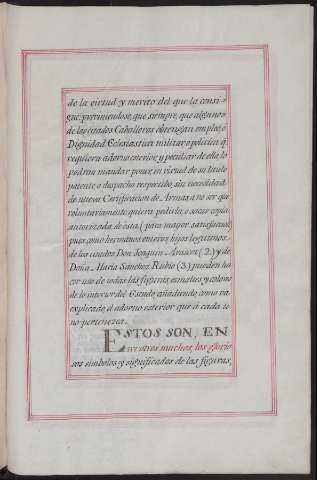 de la virtud y merito del que la consi-
gue; previniendose, que siempre que algunos
de los citados Caballeros obtengan empleo, ó
Dignidad Eclesiastica, militar, o politica q.
requiera adorno exterior, y peculiar de ella, lo
podran mandar poner en virtud de su titulo
patente, o despacho respectibo, sin necesidad
de nueva Certificacion de Armas, a no ser que
voluntariamente quiera pedirla, o sacar copia
autorizada de esta (para mayor satisfaccion)
pues como hermanos enteros, hijos legitimos
de los citados Don Joaquin (2.) y de
Doña Maria Sanchez Rubio (3.) pueden ha
cer uso de todas las figuras, esmaltes, y colores
de lo interior del Escudo, añadiendo como va
explicado el adorno exterior que á cada u-
no pertenezca.
ESTOS SON, EN
tre otros muchos, los glorio
sos simbolos, y significados de las figuras,